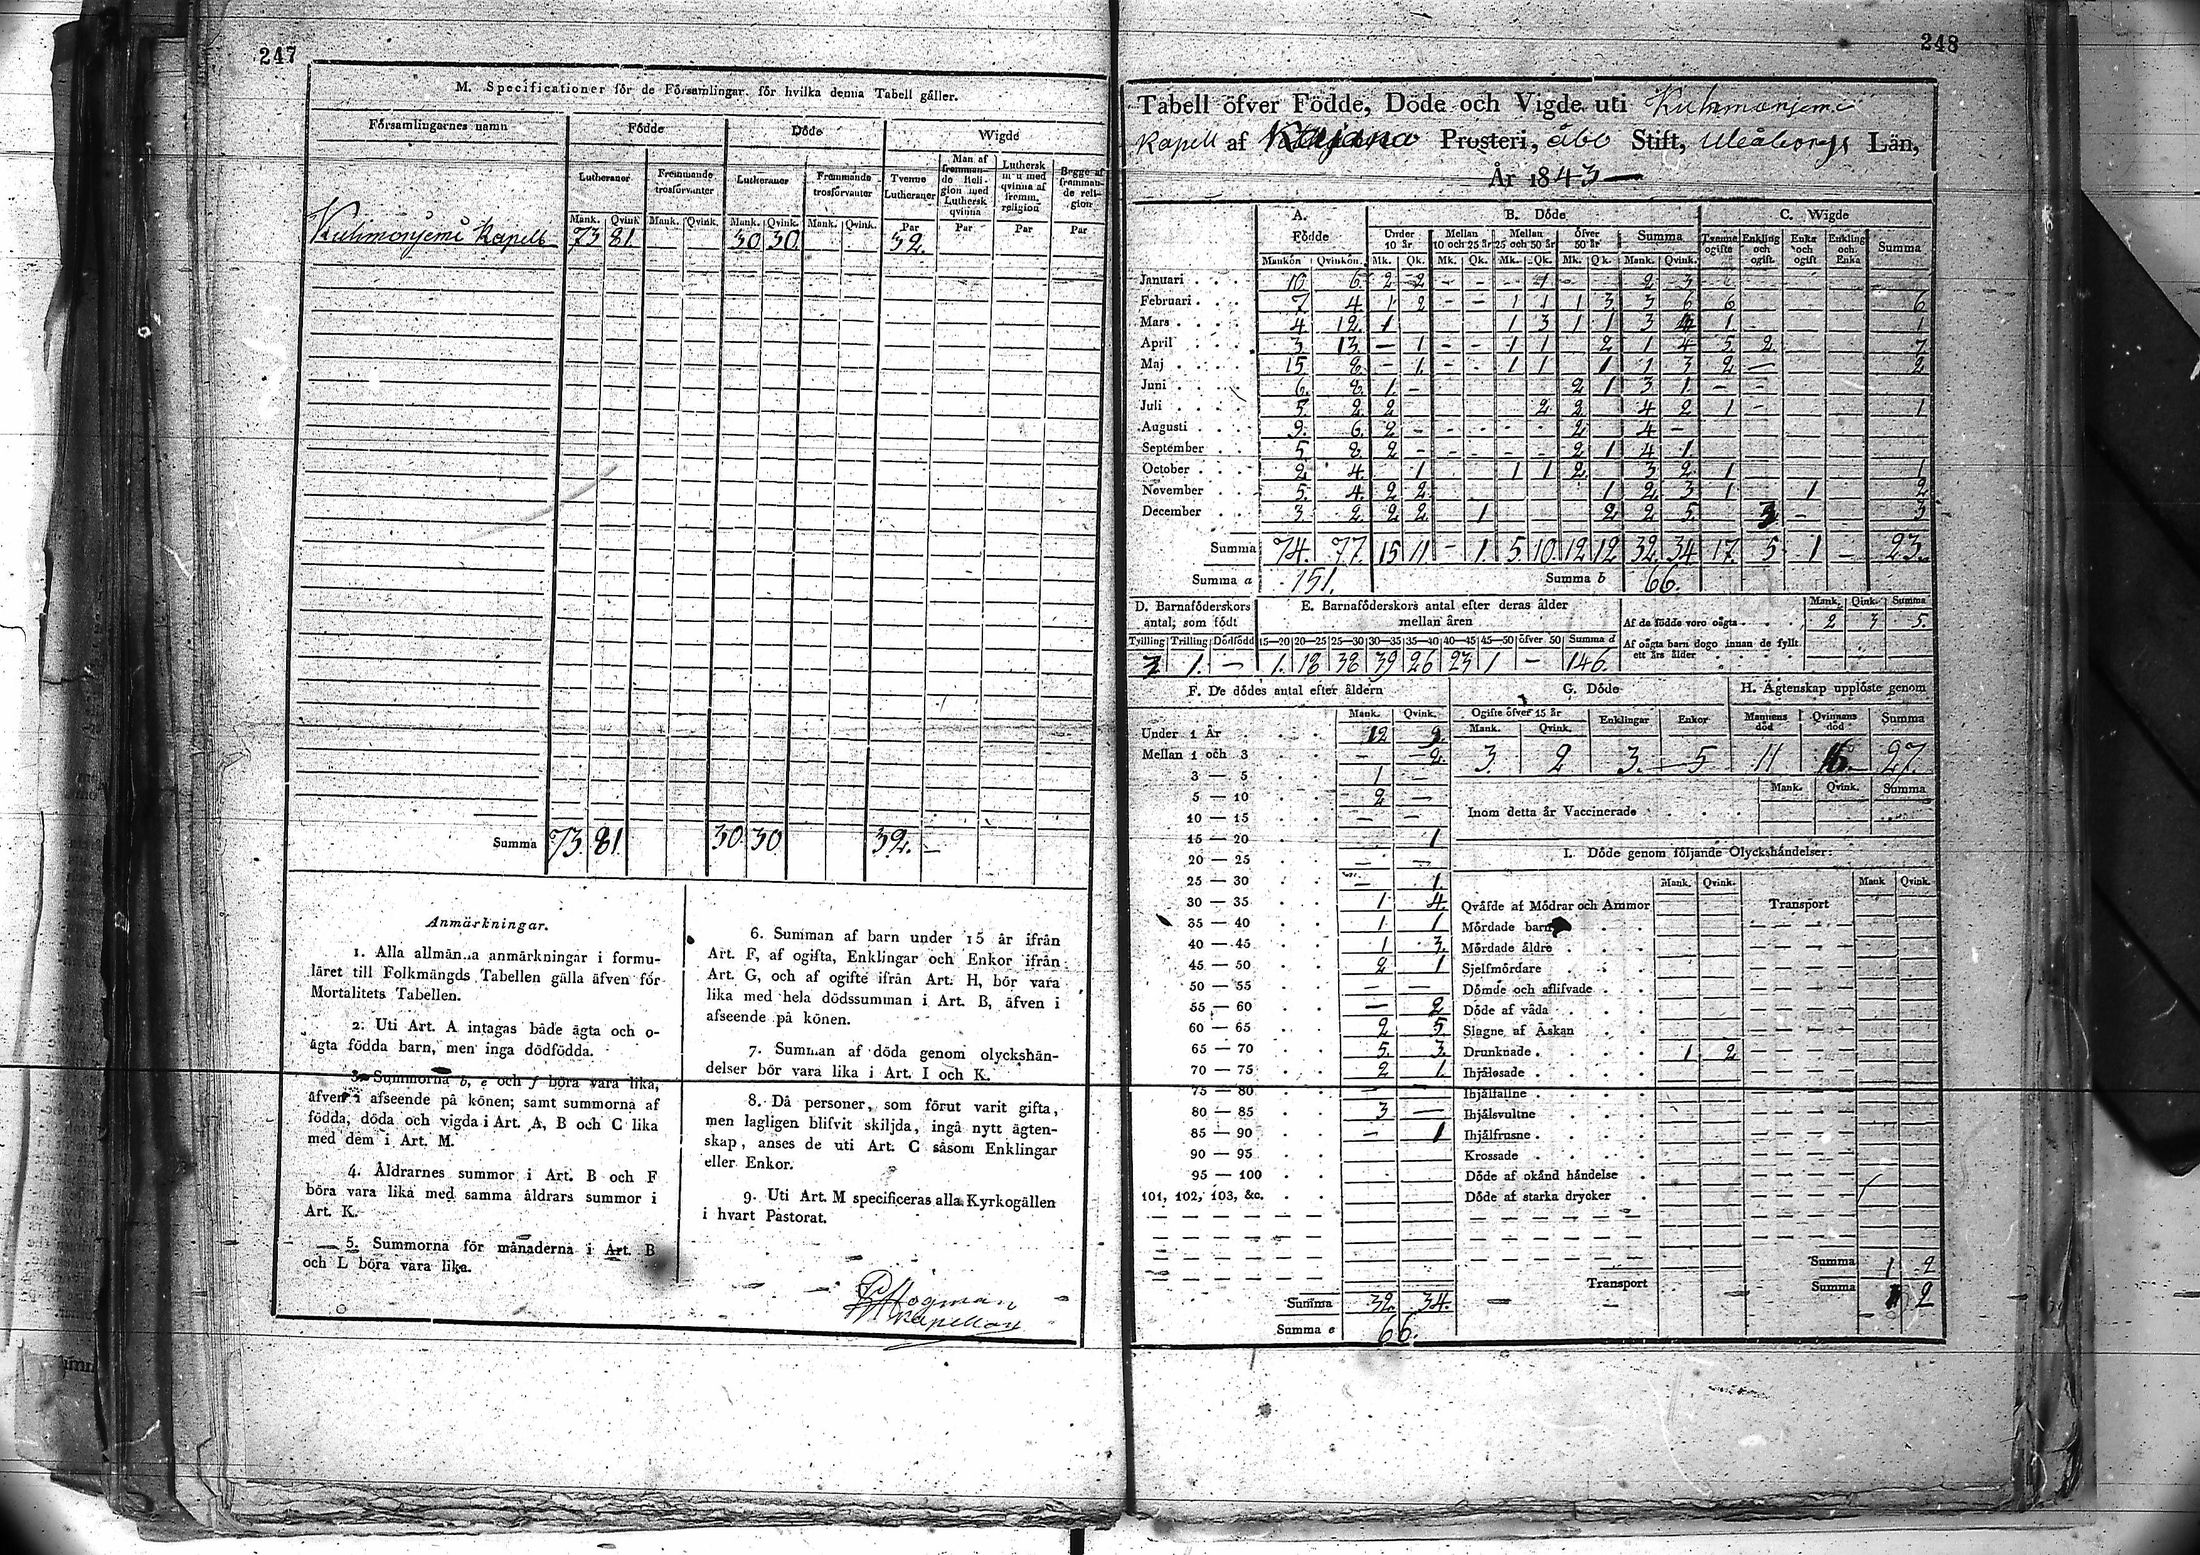 247
M. Specificationer för de Församlingar, för hvilka denna Tabell gäller.
Församlingarnes namn Födde Döde Wigde
Lutheraner Fremmande trosförvanter Lutheraner Fremmande trosförvanter Tvenne Lutheraner Man af fremmande Religion med Luthersk qvinna Luthersk man med qvinna af fremm. religion Begge af fremmande religion
Mank. Qvink Mank. Qvink. Mank. Qvink. Mank. Qvink. Par Par Par Par
Kuhmonjemi Kapell 73 81. 30 30. 32.
Summa 73. 81. 30. 30. 32. —
Anmärkningar.
1. Alla allmänna anmärkningar i formu-
läret till Folkmängds Tabellen gälla äfven för
Mortalitets Tabellen.
2. Uti Art. A intagas både ägta och o-
ägta födda barn, men inga dödfödda.
3. Summorna b, e och f böra vara lika,
äfven i afseende på könen; samt summorna af
födda, döda och vigda i Art. A, B och C lika
med dem i Art. M.
4. Åldrarnes summor i Art. B och F
böra vara lika med samma åldrars summor i
Art. K.
5. Summorna för månaderna i Art. B
och L böra vara lika.
6. Summan af barn under 15 år ifrån
Art. F, af ogifta, Enklingar och Enkor ifrån
Art. G, och af ogifte ifrån Art. H, bör vara
lika med hela dödssumman i Art. B, äfven i
afseende på könen.
7. Summan af döda genom olyckshän-
delser bör vara lika i Art. I och K.
8. Då personer, som förut varit gifta,
men lagligen blifvit skiljda, ingå nytt ägten-
skap, anses de uti Art. C såsom Enklingar
eller Enkor.
9. Uti Art. M specificeras alla Kyrkogällen
i hvart Pastorat.
Hogman
Kapellan
248
Tabell öfver Födde, Döde och Vigde uti Kuhmonjemi
Kapell af Kajana Prosteri, Åbo Stift, Uleåborgs Län,
År 1843 —
A. Födde B. Döde C. Wigde
Under 10 år Mellan 10 och 25 år Mellan 25 och 50 år öfver 50 år Summa Tvenne ogifte Enkling och ogift Enka och ogift Enkling och Enka Summa
Mankön Qvinkön. Mk. Qk. Mk. Qk. Mk. Qk. Mk. Qk. Mank. Qvink.
Januari 10 6. 2 2 - - - 1 - - 2 3
Februari 7 4 1 2 - - 1 1 1 3 3 6 6 6
Mars 4 12. 1 1 3 1 1 3 1. 1
April 3 13. — 1 - - 1 1 2 1 4 5 2 7
Maj 15 8 — 1. - - 1 1 1 1 3 2 — 2
Juni 6. 8 1. - 2 1 3 1. - -
Juli 5 2 2 2 2 4 2 1 - 1
Augusti 9. 6. 2 - - - - - 2 4 -
September 5 8 2 - - - - - 2 1 4 1
October 2 4. 1 1 1 2 3 2 1 1
November 5. 4. 2 2 1 2 3 1 1 2
December 3. 2 2 2 1 2 2 5. 3 - 3
Summa 74. 77. 15 11 - 1. 5. 10 12 12 32 34 17. 5 1 — 23.
Summa a 151. Summa b 66.
D. Barnaföderskors antal, som födt E. Barnaföderskors antal efter deras ålder mellan åren Mank. Qink. Summa
Af de födde voro oägta 2 3 5
Tvilling Trilling Dödfödd 15—20 20—25 25—30 30—35 35—40 40—45 45—50 öfver 50 Summa d Af oägta barn dogo innan de fyllt ett års ålder
1. — 1. 18 38 39 26 23 1 — 146.
F. De dödes antal efter åldern G. Döde H. Ägtenskap upplöste genom
Mank. Qvink. Ogifte öfver 15 år Enklingar Enkor Mannens död Qvinnans död Summa
Mank. Qvink.
Under 1 År 12 9
3. 2 3. 5 11 16. 27.
Mellan 1 och 3 — 2.
3 — 5 1 —
5 — 10 2 —
Mank. Qvink. Summa
10 — 15 — — Inom detta år Vaccinerade
15 — 20 1
20 — 25 — — I. Döde genom följande Olyckshändelser:
25 — 30 — 1. Mank. Qvink. Mank Qvink.
30 — 35 1 4. Qväfde af Mödrar och Ammor Transport
35 — 40 1 1 Mördade barn
40 — 45 1 3. Mördade äldre
45 — 50 2 1 Sjelfmördare
50 — 55 — — Dömde och aflifvade
55 — 60 — 2 Döde af våda
60 — 65 2 5 Slagne af Åskan
65 — 70 5. 3. Drunknade 1 2
70 — 75 2 1. Ihjälosade
75 — 80 — — Ihjälfallne
80 — 85 3 — Ihjälsvultne
85 — 90 — 1 Ihjälfrusne
90 — 95 Krossade
95 — 100 Döde af okänd händelse
101, 102, 103, &c. Döde af starka drycker
Summa 1 2
Transport Summa 1 2
Summa 32. 34.
Summa e 66.